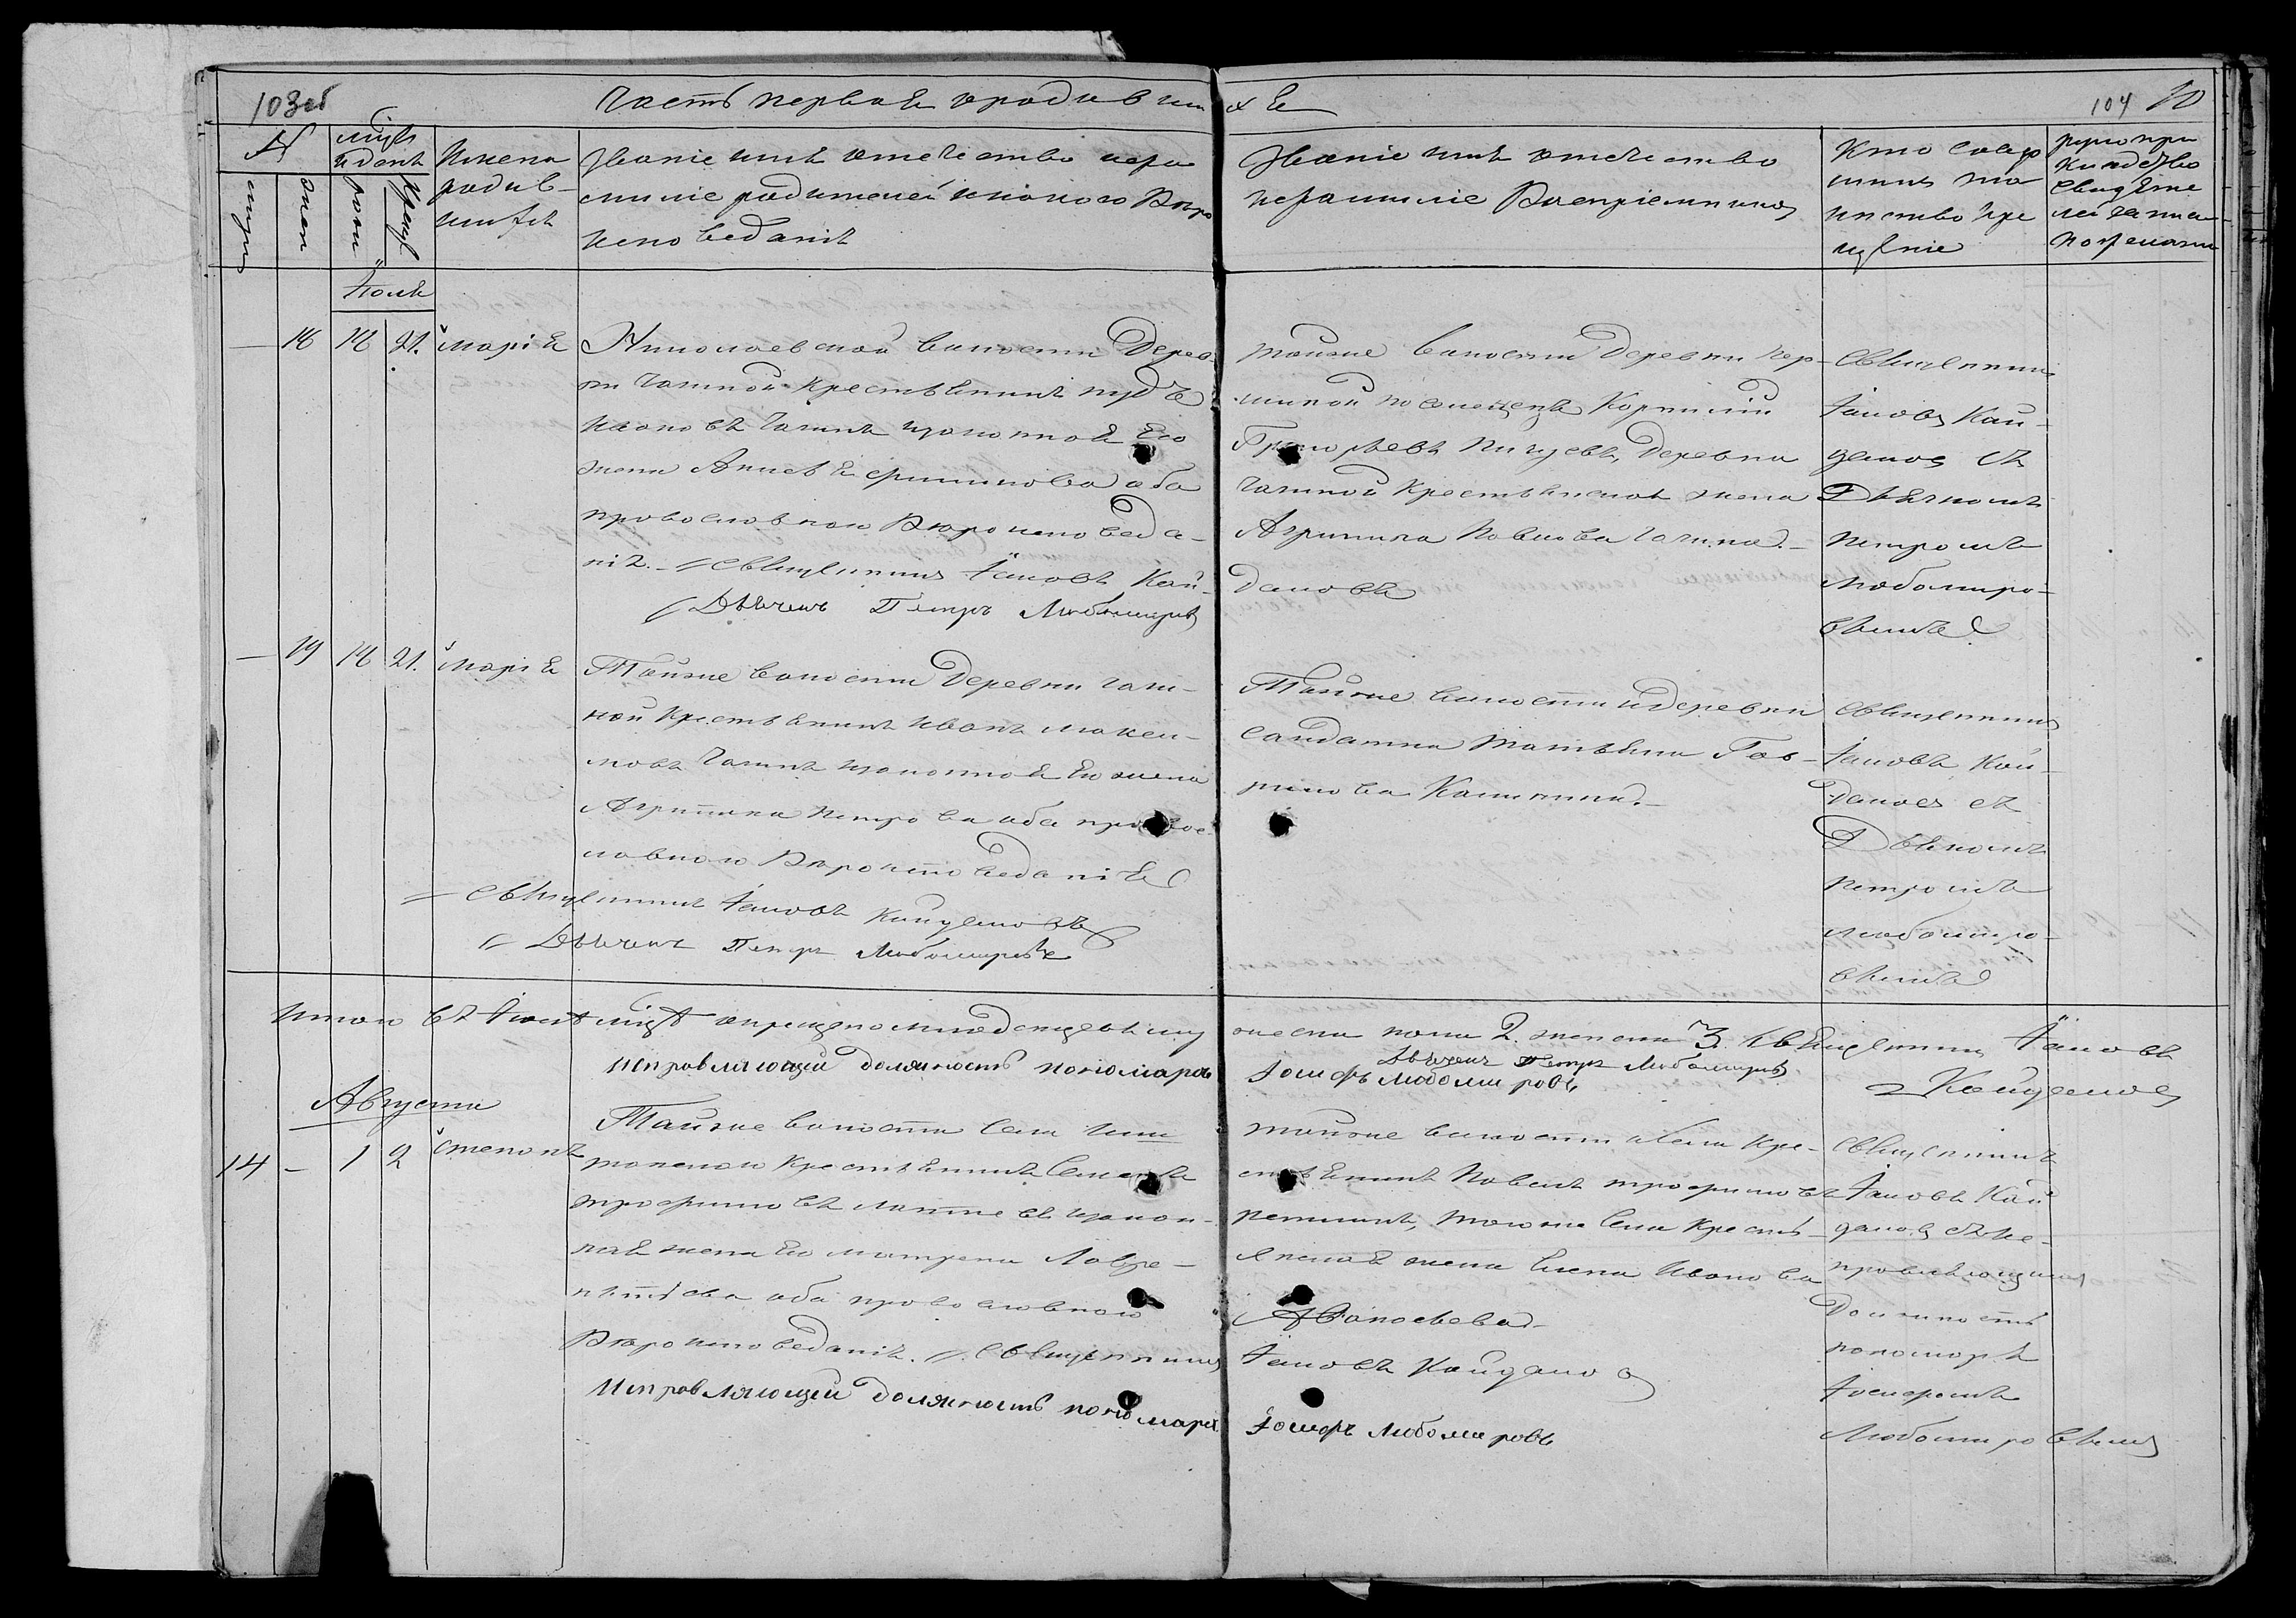 103об
Часть первая о родивш
ихся
104 10
№
мѣсяцъ
и день
Имена
родив-
шихся
Званіе имя отечество и фа
миліе родителей и какого Вѣро
исповеданія
Званіе имя отечество
и фамиліе Воспріемниковъ
Кто совер
шалъ та
инство кре
щеніе
рукопри
кладство
свидѣте
лей записи
по желанію
женск
рожд
крещ
Іюля
— 18 18 21. Марія
Николаевской волости Дерев
ни Чапиной Крестьянинъ
Чапинъ и законная Его
жена оба
православнаго Вѣроисповеда-
нія. Священникъ Іаковъ Кай-
Дьячекъ Петръ Любомировъ
тойже волости Деревни Чер-
Корнилій
Григорьевъ Пичуевъ, Деревни
Чапиной Крестьянская жена
Агрипина Павлова Чапина.
дановъ
Священникъ
Іаковъ Кай-
дановъ съ
Дьячкомъ
Петромъ
Любомиро-
вымъ
— 19 18 21. Марія
Тойже волости Деревни Чапи-
ной Крестьянинъ Иванъ Макси-
мовъ Чапинъ и законная Его жена
Агрипина Петрова оба правос-
лавнаго Вѣроисповеданія
Священникъ Іаковъ Кайдановъ
Дьячекъ Петръ Любомировъ
Тойже волости и деревни
салдатка Татьяна Гав-
рилова
Священникъ
Іаковъ Кай-
дановъ съ
Дьячкомъ
Петромъ
Любомиро-
вымъ
Итого въ Іюле мѣсяцѣ крещено младенцевъ му
жеска пола 2. женска 3. Священникъ Іаковъ
Кайдановъ
Дьячекъ Петръ Любомировъ
Исправляющій должность пономаря
Іосифъ Любомировъ
Августа
14 — 1 2 Степанъ
Тойже волости села
Крестьянинъ
Трофимовъ и закон-
ная жена Его Матрена Лавре-
нтьева оба православнаго
Вѣроисповеданія. Священникъ
Исправляющій должность пономаря
тойже волости и села Кре-
стьянинъ Павелъ Трофимовъ
тогоже села кресть-
янская жена Елена Иванова
Іаковъ Кайдановъ
Іосифъ Любомировъ
Священникъ
Іаковъ Кай
дановъ съ Ис-
правляющимъ
Должность
пономаря
Іосифомъ
Любомировымъ